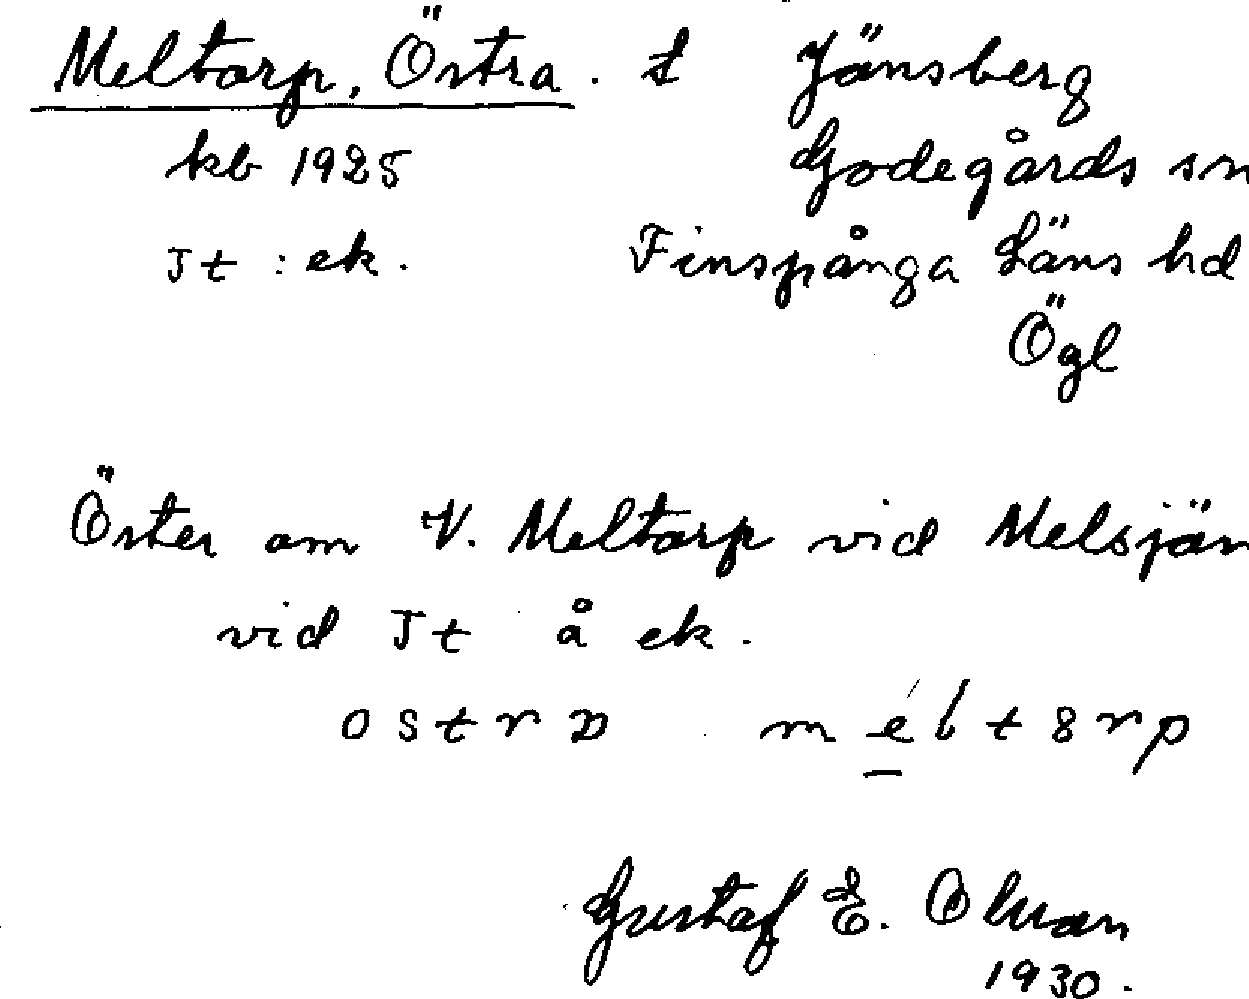 Meltorp, Östra. t Jönsberg
kb 1925 Godegårds sn
Jt : ek. Finspånga Läns hd
Ögl
Öster om V. Meltorp vid Melsjön
vid Jt å ek.
Gustaf E. Olson
1930.